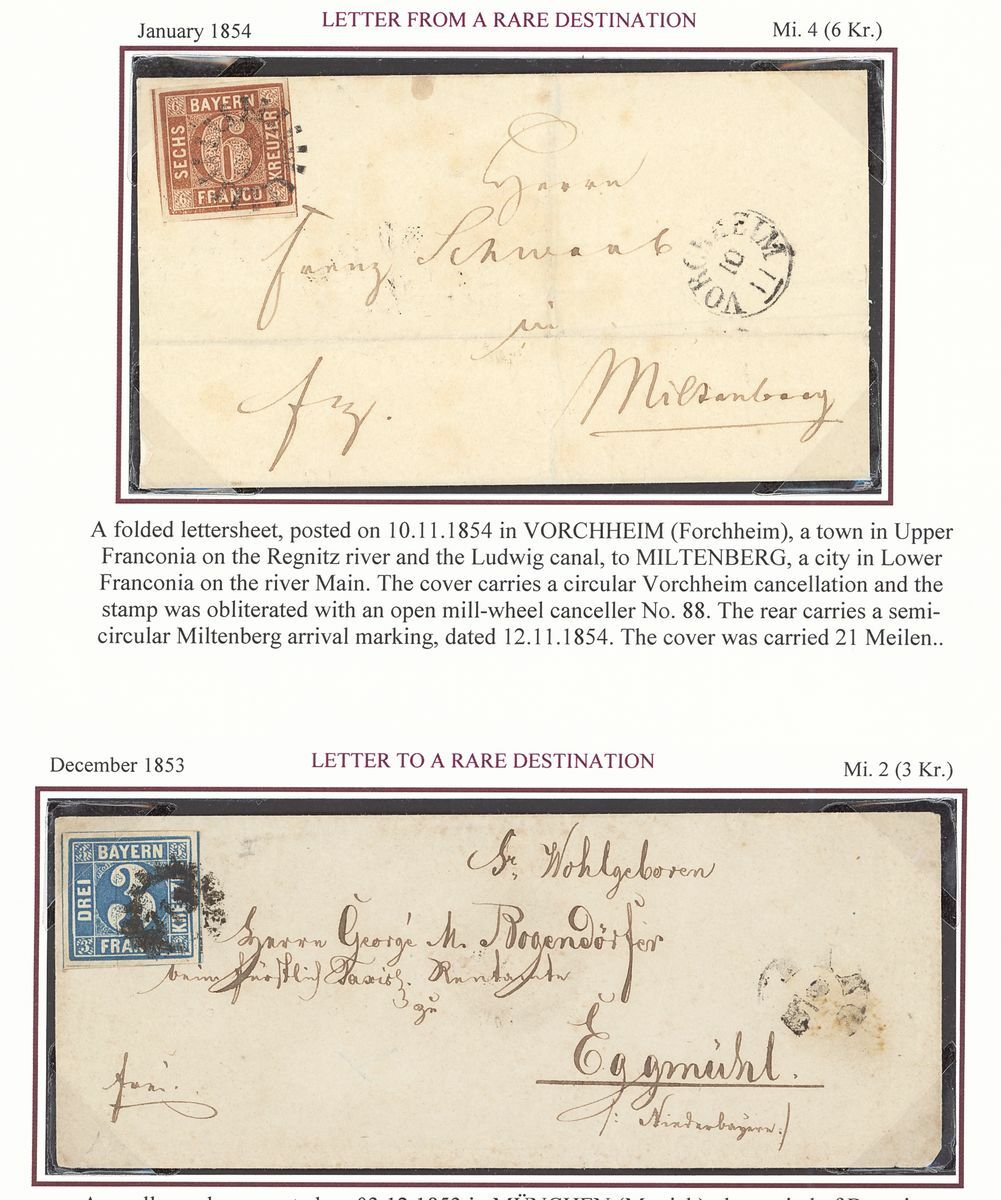 January 1854
LETTER FROM A RARE DESTINATION
Mi. 4 (6 Kr.)
BAYERN
SECHS
6
KREUZER
FRANCO
Herrn
Franz Schwarb
in
Miltenberg
frz.
VORCHHEIM
10
11
A folded lettersheet, posted on 10.11.1854 in VORCHHEIM (Forchheim), a town in Upper
Franconia on the Regnitz river and the Ludwig canal, to MILTENBERG, a city in Lower
Franconia on the river Main. The cover carries a circular Vorchheim cancellation and the
stamp was obliterated with an open mill-wheel canceller No. 88. The rear carries a semi-
circular Miltenberg arrival marking, dated 12.11.1854. The cover was carried 21 Meilen..
December 1853
LETTER TO A RARE DESTINATION
Mi. 2 (3 Kr.)
BAYERN
DREI
3
Sr. Wohlgeboren
Herrn George M. Rogendörfer
beim fürstlich Taxis. Rentamte
zu
Eggmühl.
/: Niederbayern:/
frei.